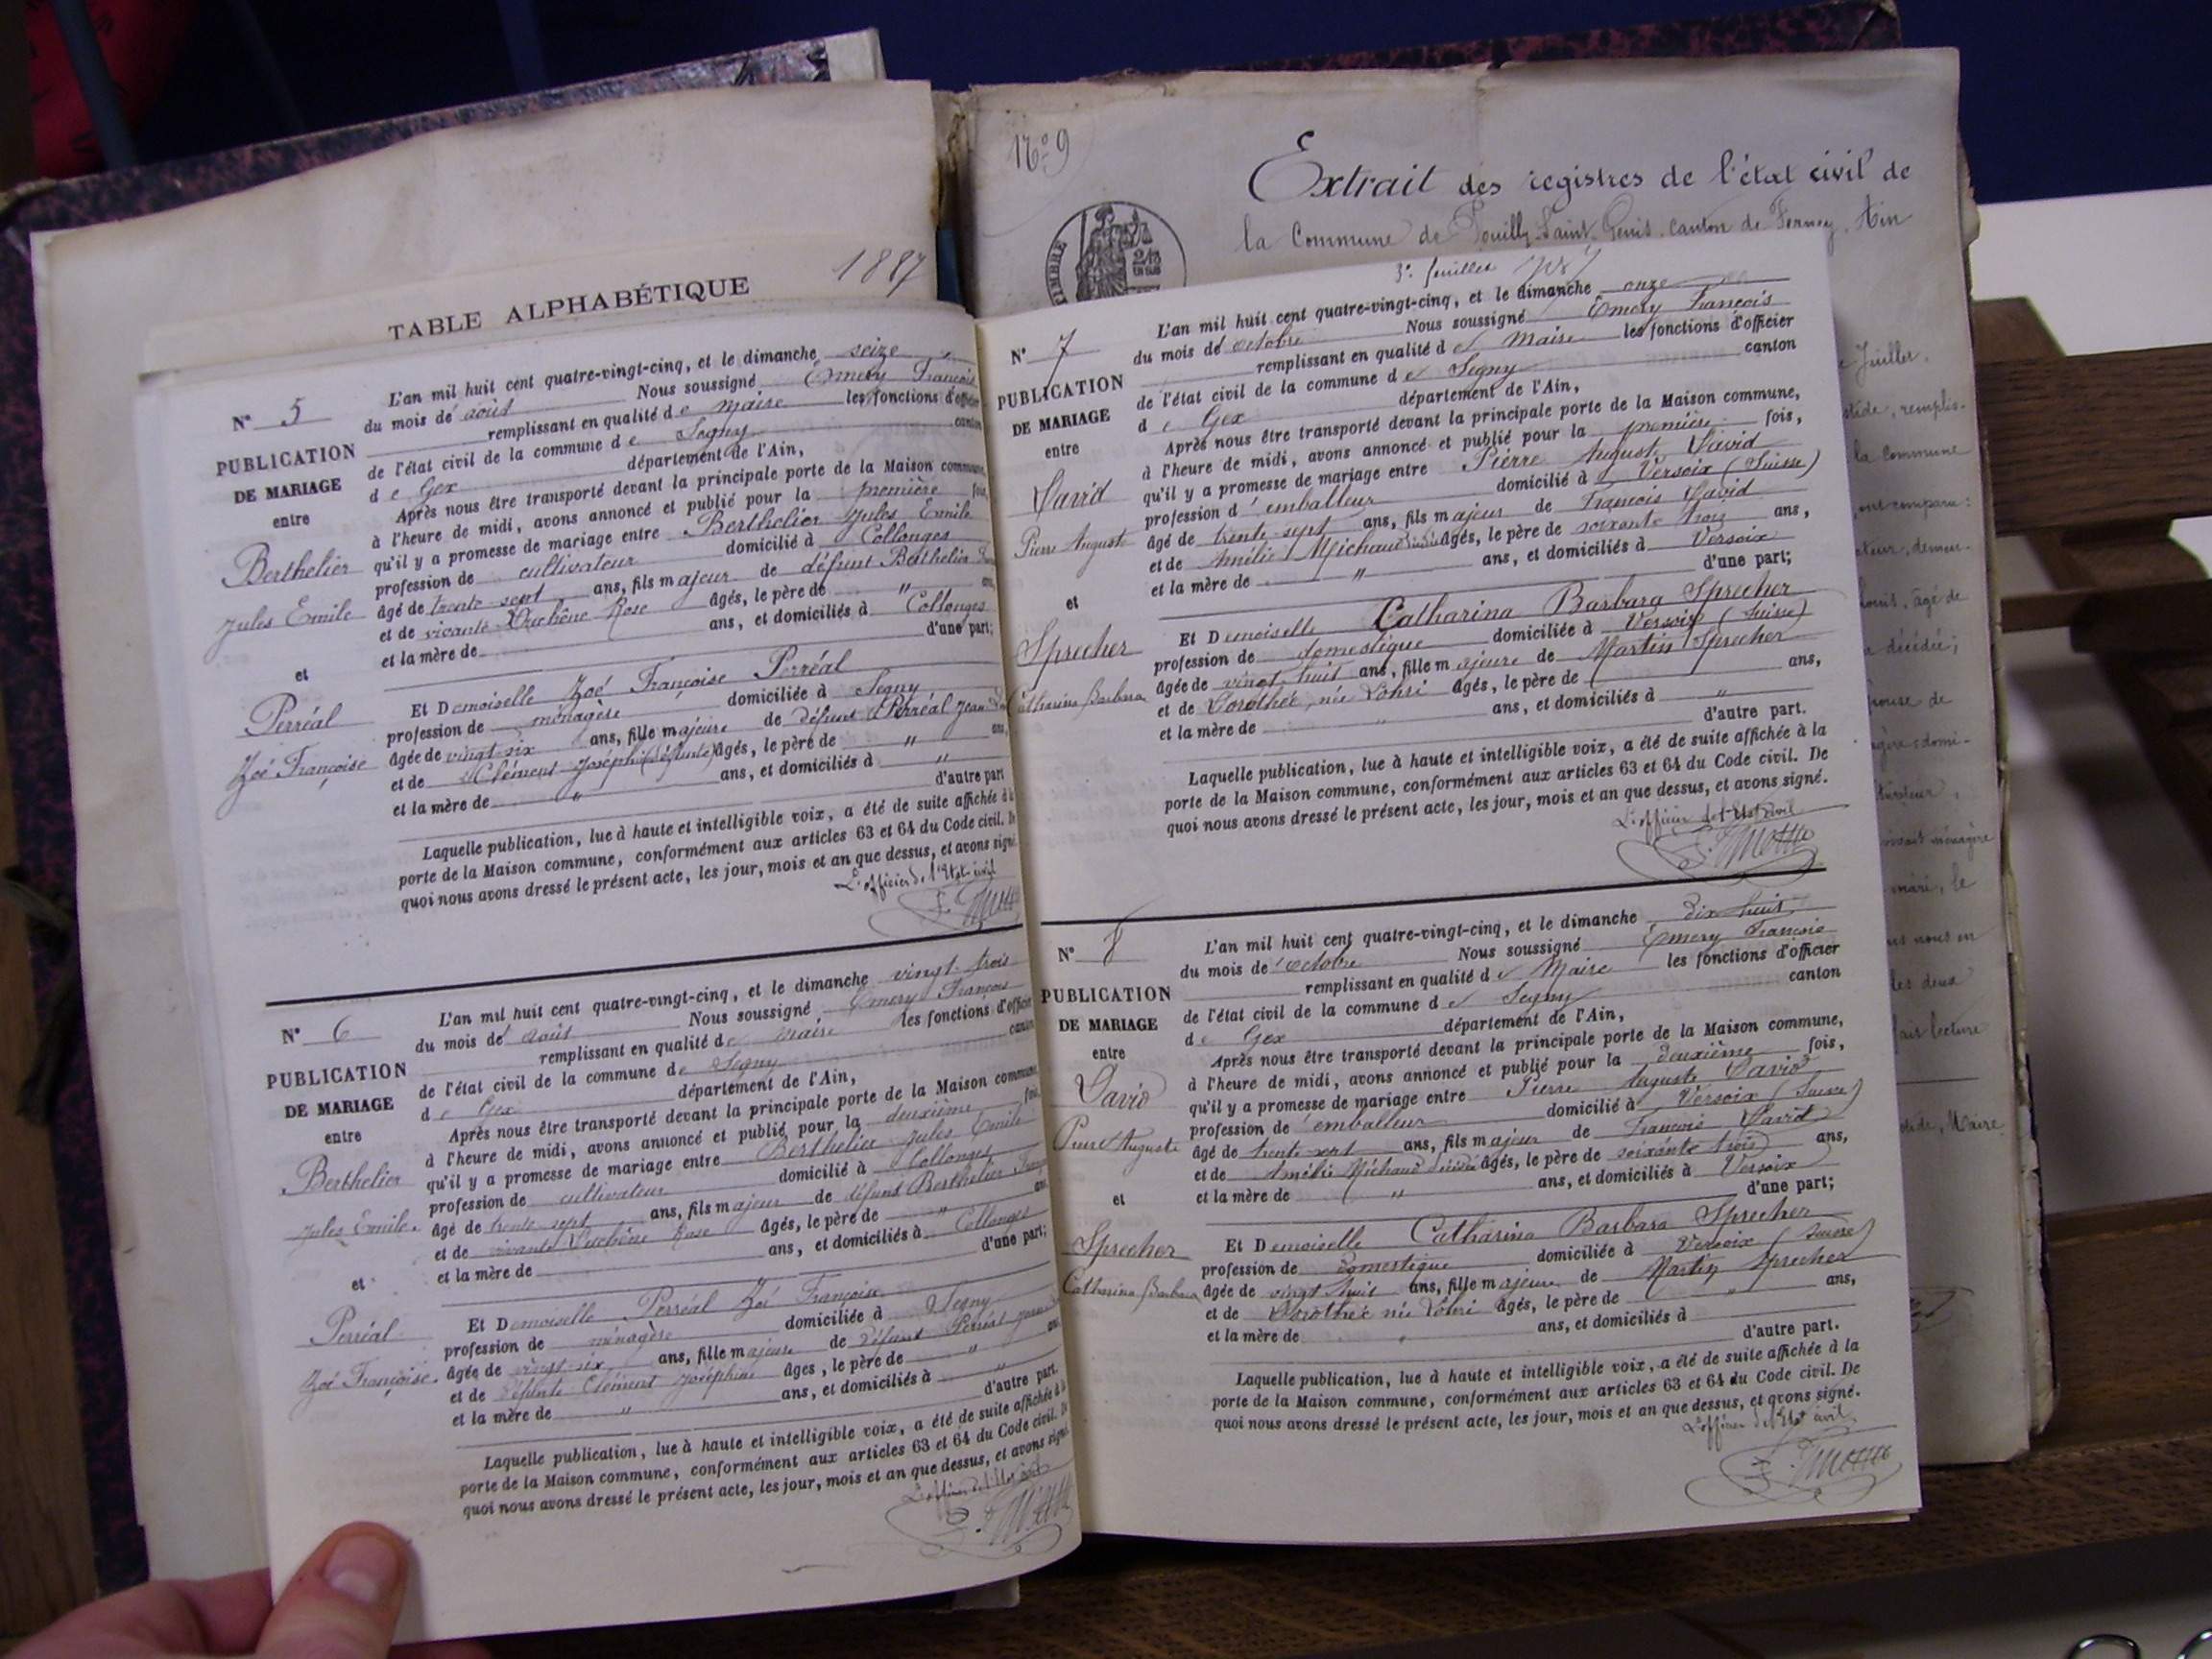 1887
TABLE ALPHABÉTIQUE
N° 5
PUBLICATION
DE MARIAGE
entre
Berthelier
Jules Emile
et
Perréal
Zoé Françoise
L'an mil huit cent quatre-vingt-cinq, et le dimanche seize
du mois de août Nous soussigné Emery François
remplissant en qualité de maire les fonctions d'officier
de l'état civil de la commune de Segny canton
de Gex département de l'Ain,
Après nous être transporté devant la principale porte de la Maison commune,
à l'heure de midi, avons annoncé et publié pour la première fois,
qu'il y a promesse de mariage entre Berthelier Jules Emile
profession de cultivateur domicilié à Collonges
âgé de trente sept ans, fils majeur de défunt Berthelier
et de vivante Duchêne Rose âgés, le père de " ans,
et la mère de ans, et domiciliés à Collonges
d'une part;
Et Demoiselle Zoé Françoise Perréal
profession de ménagère domiciliée à Segny
âgée de vingt six ans, fille majeure de défunt Perréal Jean
et de Clément Joséphi (défunte) âgés, le père de " ans,
et la mère de " ans, et domiciliés à "
d'autre part
Laquelle publication, lue à haute et intelligible voix, a été de suite affichée à la
porte de la Maison commune, conformément aux articles 63 et 64 du Code civil. De
quoi nous avons dressé le présent acte, les jour, mois et an que dessus, et avons signé.
L'officier de l'Etat civil
N° 6
PUBLICATION
DE MARIAGE
entre
Berthelier
Jules Emile.
et
Perréal
Zoé Françoise.
L'an mil huit cent quatre-vingt-cinq, et le dimanche vingt trois
du mois de août Nous soussigné Emery François
remplissant en qualité de maire les fonctions d'officier
de l'état civil de la commune de Segny canton
de Gex département de l'Ain,
Après nous être transporté devant la principale porte de la Maison commune,
à l'heure de midi, avons annoncé et publié pour la deuxième fois,
qu'il y a promesse de mariage entre Berthelier Jules Emile
profession de cultivateur domicilié à Collonges
âgé de trente sept ans, fils majeur de défunt Berthelier
et de vivante Duchêne Rose âgés, le père de " ans,
et la mère de ans, et domiciliés à Collonges
d'une part;
Et Demoiselle Perréal Zoé Françoise
profession de ménagère domiciliée à Segny
âgée de vingt-six ans, fille majeure de défunt Perréal Jean
et de défunte Clément Joséphine âgés, le père de " ans,
et la mère de " ans, et domiciliés à "
d'autre part.
Laquelle publication, lue à haute et intelligible voix, a été de suite affichée à la
porte de la Maison commune, conformément aux articles 63 et 64 du Code civil. De
quoi nous avons dressé le présent acte, les jour, mois et an que dessus, et avons signé.
L'officier de l'Etat civil
N° 9
Extrait des registres de l'état civil de
la Commune de Pouilly-Saint-Genis, canton de Ferney, Ain
TIMBRE
3e feuillet
N° 7
PUBLICATION
DE MARIAGE
entre
David
Pierre Auguste
et
Sprecher
Catharina Barbara
L'an mil huit cent quatre-vingt-cinq, et le dimanche onze
du mois de octobre Nous soussigné Emery François
remplissant en qualité de Maire les fonctions d'officier
de l'état civil de la commune de Segny canton
de Gex département de l'Ain,
Après nous être transporté devant la principale porte de la Maison commune,
à l'heure de midi, avons annoncé et publié pour la première fois,
qu'il y a promesse de mariage entre Pierre August David
profession d'emballeur domicilié à Versoix (Suisse)
âgé de trente-sept ans, fils majeur de François David
et de Amélie Michaud âgés, le père de soixante trois ans,
et la mère de " ans, et domiciliés à Versoix
d'une part;
Et Demoiselle Catharina Barbara Sprecher
profession de domestique domiciliée à Versoix (Suisse)
âgée de vingt huit ans, fille majeure de Martin Sprecher
et de Dorothée, née Lohri âgés, le père de ans,
et la mère de " ans, et domiciliés à "
d'autre part.
Laquelle publication, lue à haute et intelligible voix, a été de suite affichée à la
porte de la Maison commune, conformément aux articles 63 et 64 du Code civil. De
quoi nous avons dressé le présent acte, les jour, mois et an que dessus, et avons signé.
L'officier de l'Etat civil
N° 8
PUBLICATION
DE MARIAGE
entre
David
Pierre Auguste
et
Sprecher
Catharina Barbara
L'an mil huit cent quatre-vingt-cinq, et le dimanche dix huit
du mois d'octobre Nous soussigné Emery François
remplissant en qualité de Maire les fonctions d'officier
de l'état civil de la commune de Segny canton
de Gex département de l'Ain,
Après nous être transporté devant la principale porte de la Maison commune,
à l'heure de midi, avons annoncé et publié pour la deuxième fois,
qu'il y a promesse de mariage entre Pierre Auguste David
profession d'emballeur domicilié à Versoix (Suisse)
âgé de trente sept ans, fils majeur de François David
et de Amélie Michaud âgés, le père de soixante trois ans,
et la mère de " ans, et domiciliés à Versoix
d'une part;
Et Demoiselle Catharina Barbara Sprecher
profession de domestique domiciliée à Versoix (Suisse)
âgée de vingt huit ans, fille majeure de Martin Sprecher
et de Dorothée née Lohri âgés, le père de " ans,
et la mère de " ans, et domiciliés à
d'autre part.
Laquelle publication, lue à haute et intelligible voix, a été de suite affichée à la
porte de la Maison commune, conformément aux articles 63 et 64 du Code civil. De
quoi nous avons dressé le présent acte, les jour, mois et an que dessus, et avons signé.
L'officier de l'Etat civil
Juillet.
remplis-
la Commune
ont comparu:
demeu-
Louis, âgé de
décidée;
épouse de
domi-
ménagère
mari, le
nous en
les deux
fait lecture
Maire